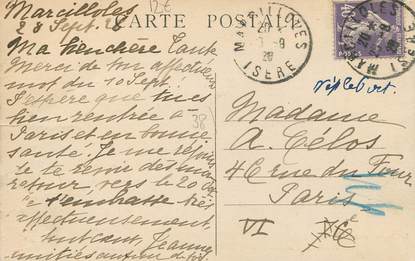 Marcilloles
28 Sept. 28
12€
CARTE POSTALE
Ma bien chère Tante
Merci de ton affectueux
mot du 10 Sept.
J'espère que tu es
bien rentrée à
Paris et en bonne
santé. Je me réjouis
de te revoir dès mon
retour, vers le 20 Oct.
Je t'embrasse très
affectueusement
Jeanne
38
MARCILLOLES
ISÈRE
MARCILLOLES
ISÈRE
40c
Madame
A. Célos
4 C rue du Four
Paris
VI
XVe